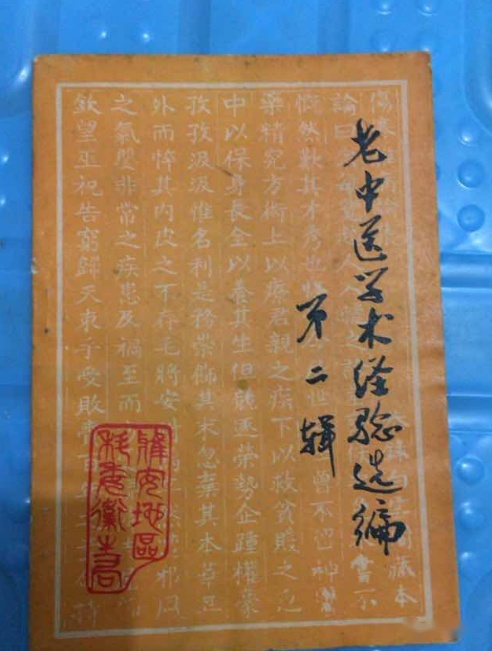 老中医学术经验选编
第二辑
論曰
慨然歎其才秀也 世 曾不留神醫
藥精究方術上以療君親之疾下以救貧賤之厄
中以保身長全以養其生但競逐榮勢企踵權豪
孜孜汲汲惟名利是務崇飾其末忽棄其本華其
外而悴其內皮之不存毛將安 邪風
之氣嬰非常之疾患及禍至而
欽望巫祝告窮歸天束手受敗 百 持
雅安地區
科委衛生局